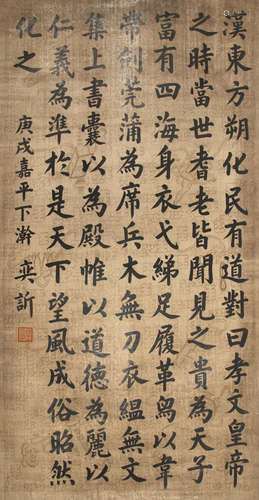 漢東方朔化民有道對曰孝文皇帝
之時當世耆老皆聞見之貴為天子
富有四海身衣弋綈足履革舄以韋
帶劍莞蒲為席兵木無刀衣緼無文
集上書囊以為殿帷以道德為麗以
仁義為準於是天下望風成俗昭然
化之
庚戌嘉平下澣 奕訢